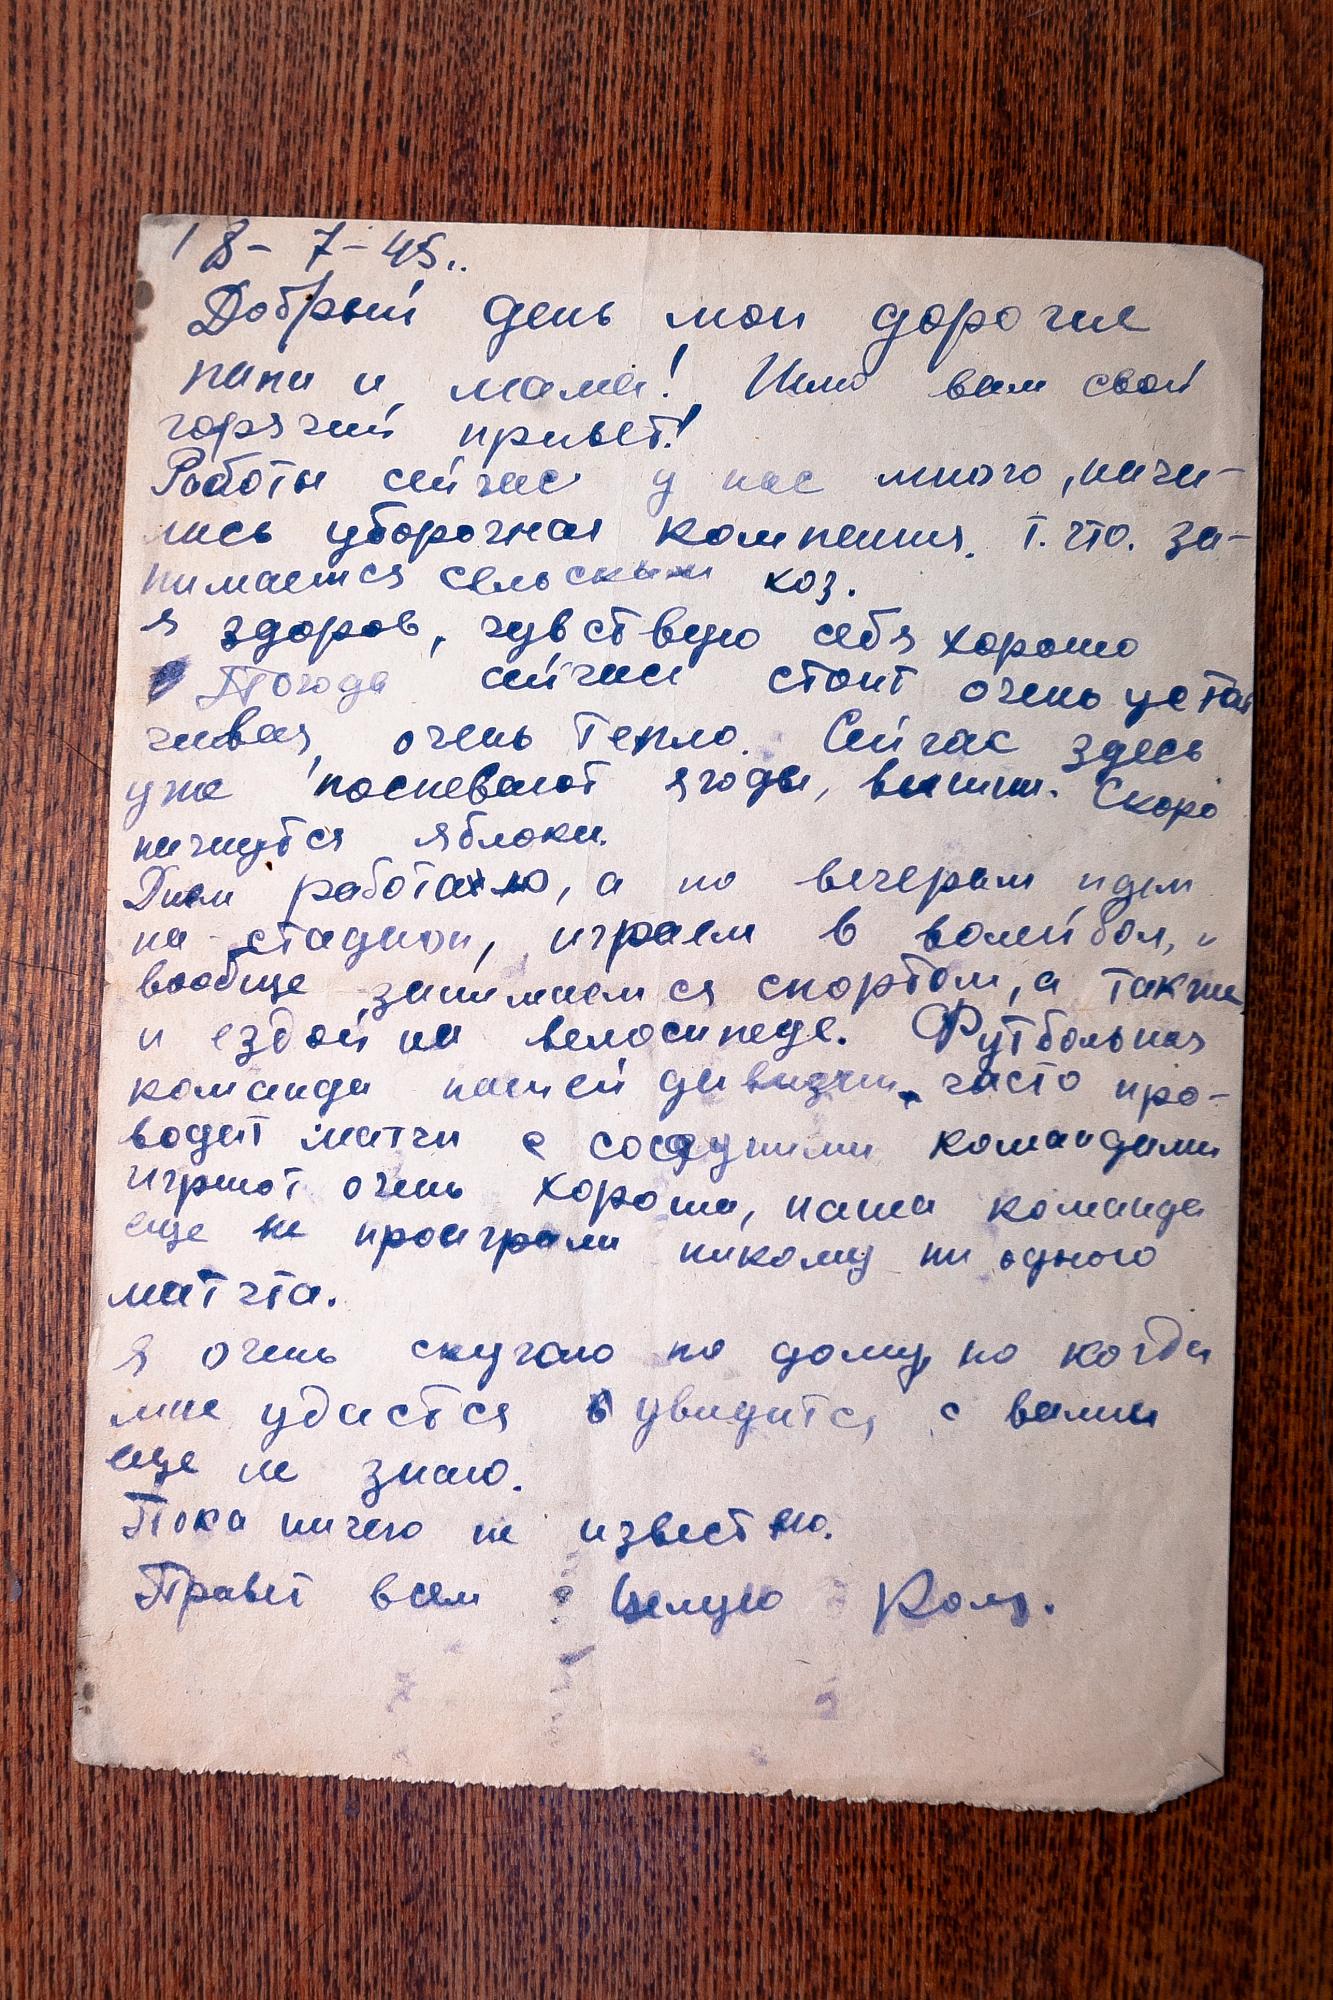 18-7-45..
Добрый день мои дорогие
папа и мама! Шлю вам свой
горячий привет!
Работы сейчас у нас много, нача-
лась уборочная компания. т.что. за-
нимаемся сельским хоз.
я здоров, чувствую себя хорошо
Погода сейчас стоит очень устой
чивая, очень тепло. Сейчас здесь
уже поспевают ягоды, вишни. Скоро
начнутся яблоки.
Днем работаю, а по вечерам идем
на стадион, играем в волейбол, и
вообще занимаемся спортом, а также
и ездой на велосипеде. Футбольная
команда нашей дивизии часто про-
водит матчи с соседними командами
играют очень хорошо, наша команда
еще не проиграли никому ни одного
матчта.
Я очень скучаю по дому, но когда
мне удастся увидится с вами
еще не знаю.
Пока ничего не известно.
Привет всем Целую Коля.